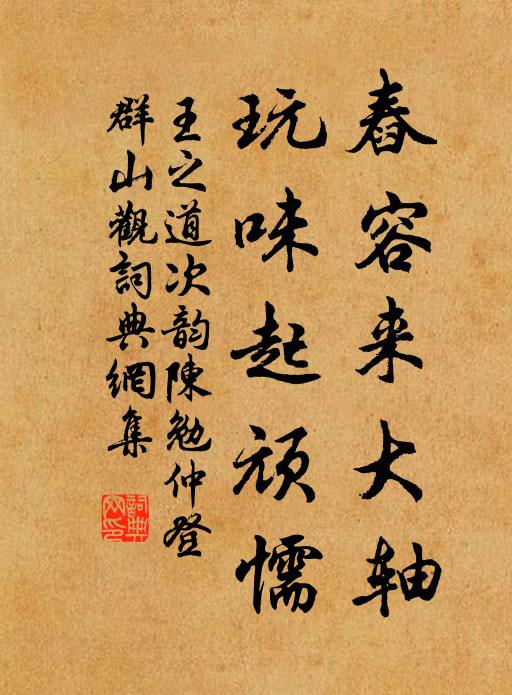 舂容来大轴
玩味起顽懦
王之道次韵陳勉仲登
群山觀詞典網集
詞典网印